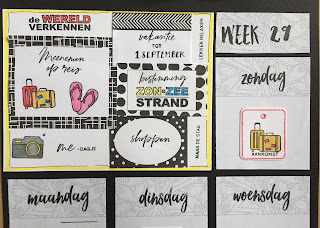 de WERELD
VERKENNEN
Meenemen
op reis
me-DAGJE
vakantie
TOT
1 SEPTEMBER
LEKKER RELAXEN
bestemming
ZON-ZEE
STRAND
shoppen
NAAR DE STAD
WEEK 29
zondag
AANKOMST
maandag
dinsdag
woensdag